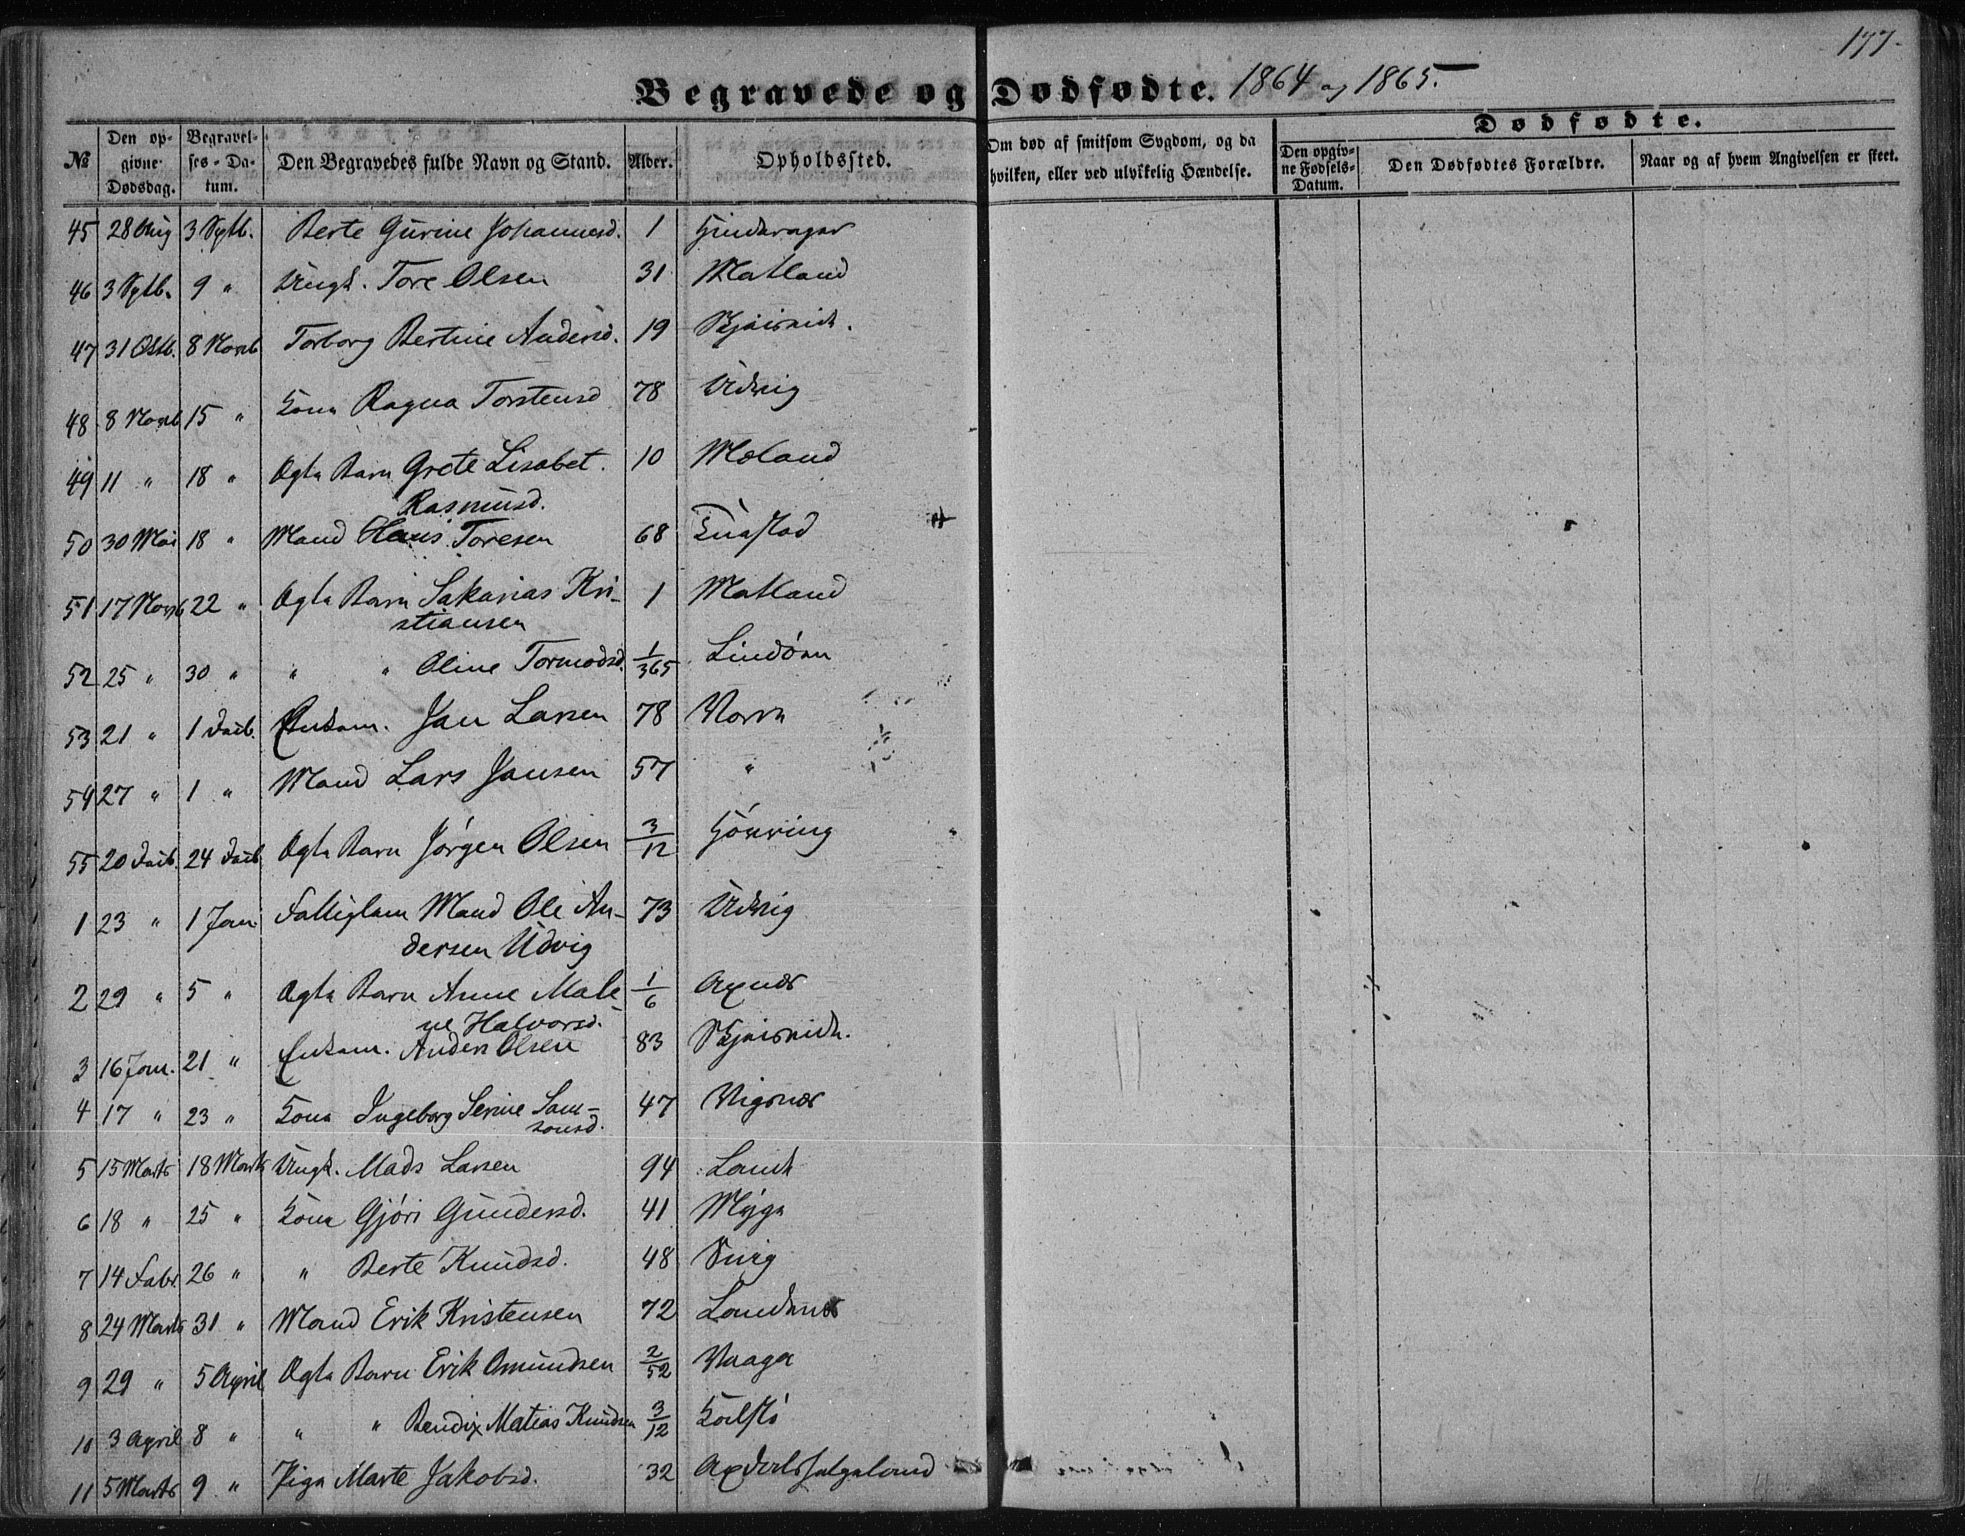 177.
Begravede og Dødfødte. 1864 og 1865.
Dødfødte.
№ Den opgivne Dødsdag. Begravelses-Datum. Den Begravedes fulde Navn og Stand. Alder. Opholdssted. Om død af smitsom Sygdom, og da hvilken, eller ved ulykkelig Hændelse. Den opgivne Fødsels-Datum. Den Dødfødtes Forældre. Naar og af hvem Angivelsen er skeet.
45 28 Aug 3 Sptb. Berte Gurine Johannesd. 1
46 3 Sptb. 9 " Ungk. Tore Olsen 31 Matland
47 31 Oktb. 8 Novb Torborg Bertine Andersd. 19
48 8 Novb 15 " Kone Ragna Torstensd 78 Udvig
49 11 " 18 " Ægte Barn Grete Lisabet 10 Mæland
Rasmusd.
50 30 Mai 18 " Mand Hans Toresen 68
51 17 Novb 22 " Ægte Barn Sakarias Kri- 1 Matland
stiansen
52 25 " 30 " " " Oline Tormodsd. 1/365 Lindøen
53 21 " 1 Decb. Enkem. Jan Larsen 78
54 27 " 1 " Mand Lars Jansen 57 "
55 20 Decb. 24 Decb Ægte Barn Jørgen Olsen 3/12 Hövring
1 23 " 1 Jan Fattiglem Mand Ole An- 73 Udvig
dersen Udvig
2 29 " 5 " Ægte Barn Anne Male- 1/6 Axnæs
ne Halvorsd.
3 16 Jan. 21 " Enkem. Anders Olsen 83
4 17 " 23 " Kone Ingeborg Serine Sam- 47 Vigsnæs
sonsd.
5 15 Marts 18 Marts Ungk. Mads Larsen 94
6 18 " 25 " Kone Gjøri Gundersd. 41
7 14 Febr. 26 " " Berte Knudsd. 48
8 24 Marts 31 " Mand Erik Kristensen 72
9 29 " 5 April Ægte Barn Erik Omundsen 2/52 Vaage
10 3 April 8 " " " Bendix Matias Knudsen 3/12
11 5 Marts 9 " Pige Marte Jakobsd. 32